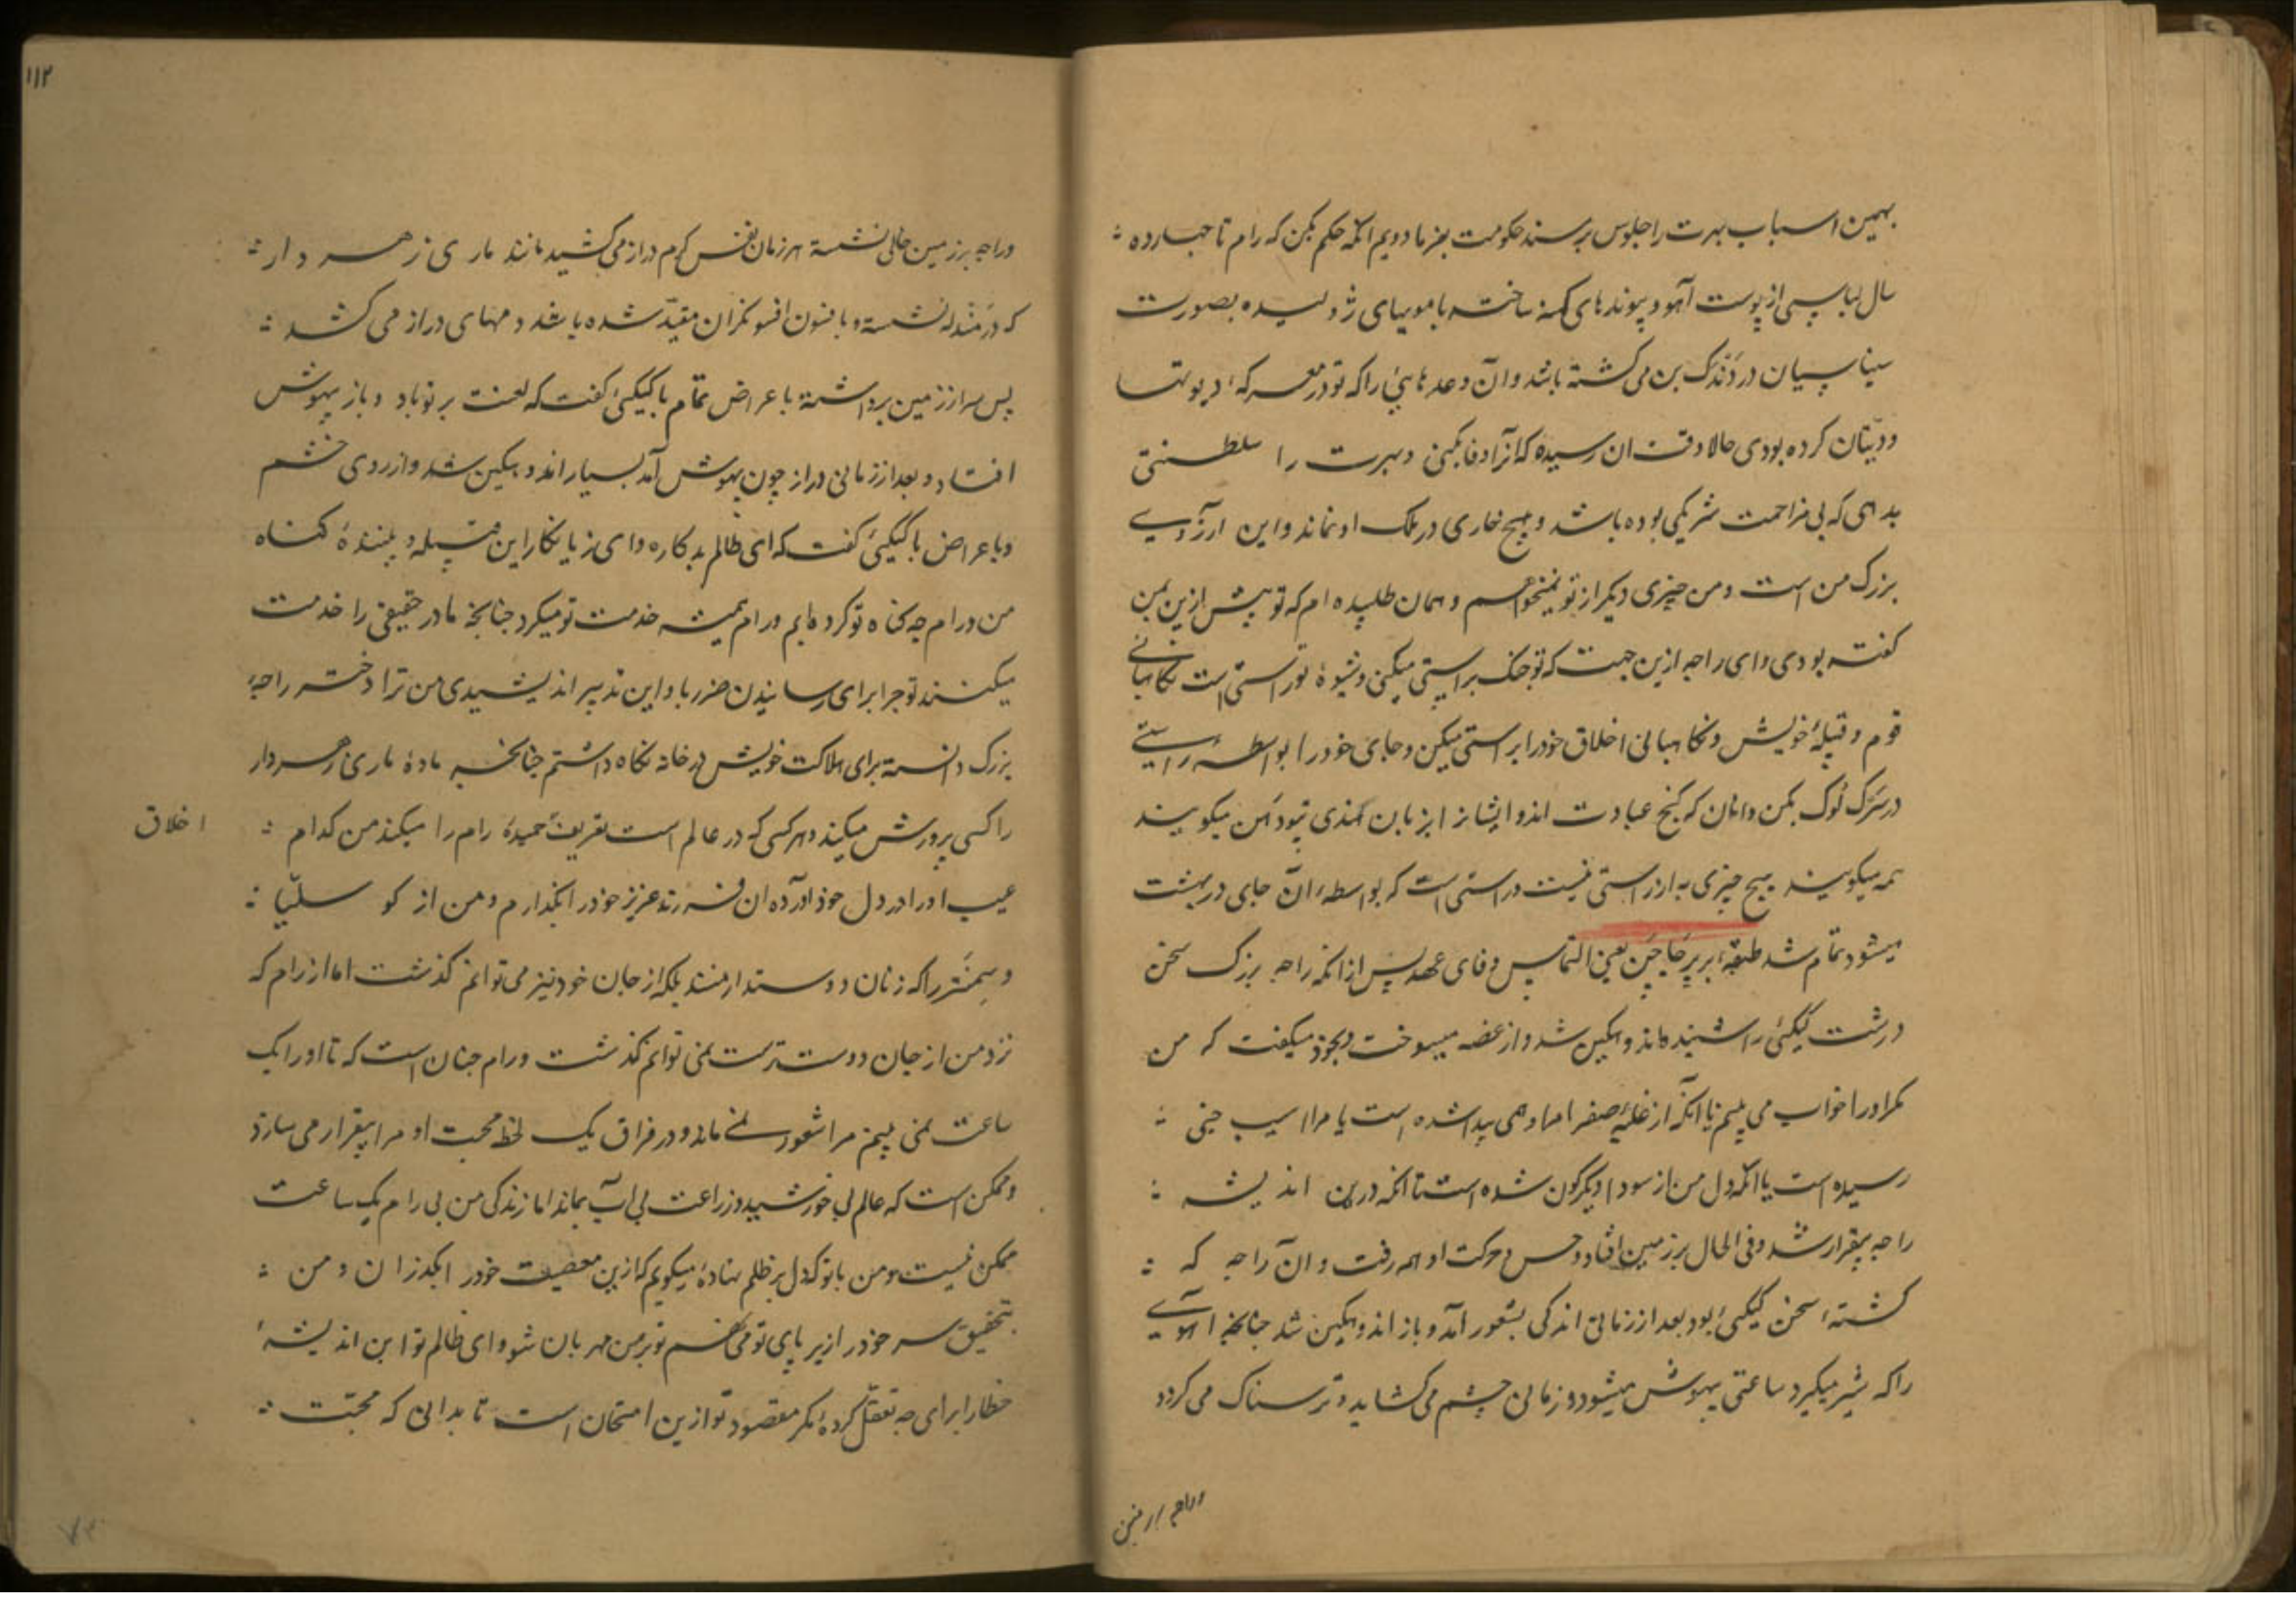 بهمین اسباب بهرت را جلوس بر مسند حکومت بفرما دویم آنکه حکم بکن که رام تا چهارده
سال لباسی از پوست آهو و پیوندهای کهنه ساخته با مویهای ژولیده بصورت
سیناسیان در دندک بن می گشته باشد و آن وعدهایی را که تو در معرکه دیوتها
و دیتان کرده بودی حالا وقت آن رسیده که آنرا وفا بکنی و بهرت را سلطنتی
بدهی که بی مزاحمت شریکی بوده باشد و هیچ خاری در ملک او نماند و این آرزوی
بزرک من است و من چیزی دیگر از تو نمیخواهم و همان طلبیده ام که تو پیش ازین بمن
گفته بودی و ای راجه ازین جهت که تو جنک براستی میکنی و شیوهٔ تو راستی است نگاهبانی
قوم و قبیلهٔ خویش و نگاهبانی اخلاق خود را براستی میکن و جای خود را بواسطهٔ راستی
در سَرَک لُوک بکن و آنان که گنج عبادت اند و ایشان را بزبان هندی تپودَهن میگویند
همه میگویند هیچ چیزی به از راستی نیست و راستی است که بواسطهٔ آن جای در بهشت
میشود تمام شد طبقهٔ بر پرجاچن یعنی التماس وفای عهد پس از آنکه راجه بزرک سخن
درشت کیکئی را شنید ماند و غمگین شد و از غصه میسوخت و بخود میگفت که من
مگر او را خواب می بینم یا آنکه از غلبهٔ صفرا مرا وهمی پیدا شده است یا مرا آسیب جنی
رسیده است یا آنکه دل من از سودا دیگرگون شده است تا آنکه درین اندیشه
راجه بیقرار شد و فی الحال بر زمین افتاد و حس و حرکت او همه رفت و آن راجه که
کشتهٔ سخن کیکئی بود بعد از زمانی اندکی بشعور آمد و باز اندوهگین شد چنانچه آهوی
را که شیر میگیرد ساعتی بیهوش میشود و زمانی چشم می کشاید و ترسناک می گردد
۱۱۲
و راجه بر زمین خالی نشسته هر زمان نفس گرم دراز می کشید مانند ماری زهردار
که در مندله نشسته و با فسون افسونگران مقید شده باشد و دمهای دراز می کشد
پس سر از زمین برداشته با عراض تمام با کیکئی گفت که لعنت بر تو باد و باز بیهوش
افتاد و بعد از زمانی دراز چون بهوش آمد بسیار اندوهگین شد و از روی خشم
و با عراض با کیکئی گفت که ای ظالم بدکاره و ای زیانکار این قبیله و بیننده کناه
من و رام چه گناه تو کرده ایم و رام همیشه خدمت تو میکرد چنانچه مادر حقیقی را خدمت
میکنند تو چرا برای رسانیدن ضرر باو این تدبیر اندیشیدی من ترا دختر راجهٔ
بزرک دانسته برای هلاکت خویش در خانه نگاه داشتم چنانچه مادهٔ ماری زهردار
را کسی پرورش میکند و هر کسی که در عالم است تعریف حمیدهٔ رام را میکند من کدام
اخلاق
عیب او را در دل خود آورده آن فرزند عزیز خود را بگذارم و من از کوسلیا
و سِمِتْرا که زنان دوستدار منند بلکه از جان خود نیز می توانم گذشت اما از رام که
نزد من از جان دوست ترست نمی توانم گذشت و رام چنان است که تا او را یک
ساعت نمی بینم مرا شعور نمی ماند و در فراق یک لحظه محبت او مرا بیقرار می سازد
و ممکن است که عالم بی خورشید و زراعت بی آب بماند اما زندگی من بی رام یک ساعت
ممکن نیست و من با تو که دل بر ظلم نهادهٔ میگویم که ازین معصیت خود را بگذران و من
بتحقیق سر خود را زیر پای تو می نهم تو بر من مهربان شو و ای ظالم تو این اندیشهٔ
خطا را برای چه تعقل کردهٔ مگر مقصود تو ازین امتحان است تا بدانی که محبت